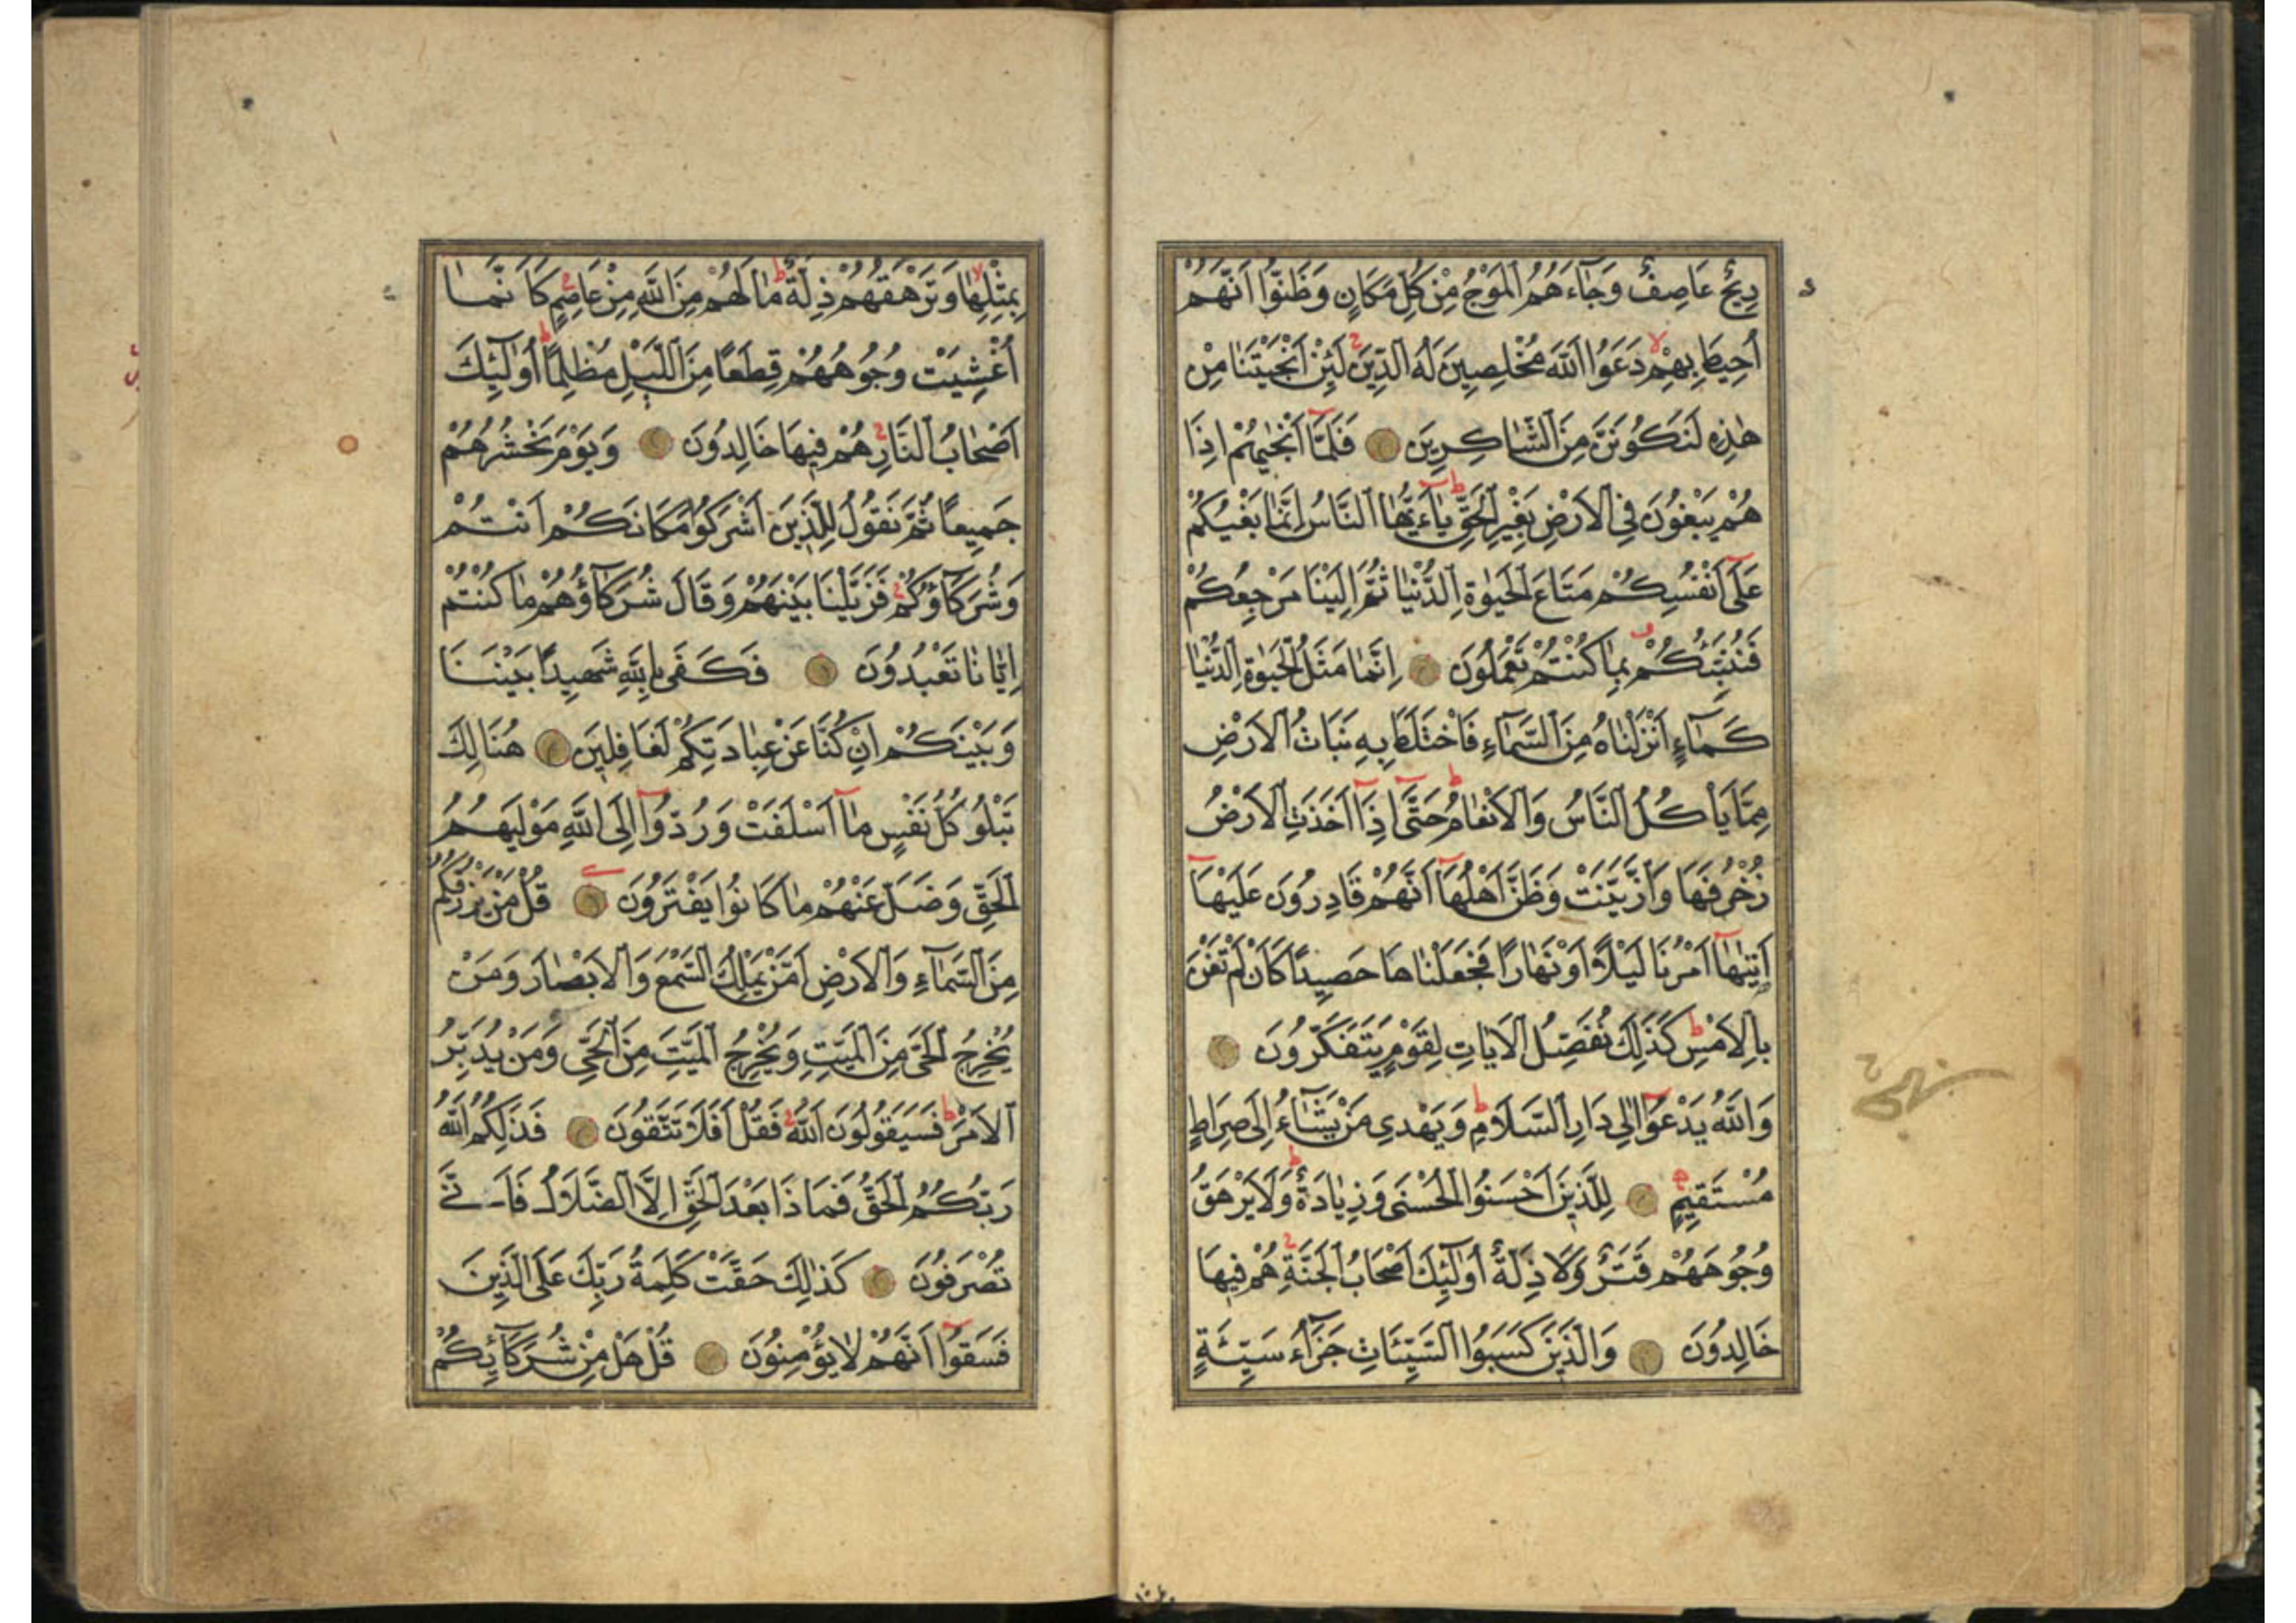 رِيحٌ عَاصِفٌ وَجَاءَهُمُ الْمَوْجُ مِنْ كُلِّ مَكَانٍ وَظَنُّوا أَنَّهُمْ
أُحِيطَ بِهِمْ دَعَوُا اللَّهَ مُخْلِصِينَ لَهُ الدِّينَ لَئِنْ أَنْجَيْتَنَا مِنْ
هٰذِهِ لَنَكُونَنَّ مِنَ الشَّاكِرِينَ فَلَمَّا أَنْجٰيهُمْ إِذَا
هُمْ يَبْغُونَ فِي الْأَرْضِ بِغَيْرِ الْحَقِّ يَاءَيُّهَا النَّاسُ إِنَّمَا بَغْيُكُمْ
عَلَى أَنْفُسِكُمْ مَتَاعَ الْحَيٰوةِ الدُّنْيَا ثُمَّ إِلَيْنَا مَرْجِعُكُمْ
فَنُنَبِّئُكُمْ بِمَا كُنْتُمْ تَعْمَلُونَ إِنَّمَا مَثَلُ الْحَيٰوةِ الدُّنْيَا
كَمَاءٍ أَنْزَلْنَاهُ مِنَ السَّمَاءِ فَاخْتَلَطَ بِهِ نَبَاتُ الْأَرْضِ
مِمَّا يَأْكُلُ النَّاسُ وَالْأَنْعَامُ حَتَّى إِذَا أَخَذَتِ الْأَرْضُ
زُخْرُفَهَا وَازَّيَّنَتْ وَظَنَّ أَهْلُهَا أَنَّهُمْ قَادِرُونَ عَلَيْهَا
أَتٰيهَا أَمْرُنَا لَيْلًا أَوْ نَهَارًا فَجَعَلْنَاهَا حَصِيدًا كَأَنْ لَمْ تَغْنَ
بِالْأَمْسِ كَذَلِكَ نُفَصِّلُ الْآيَاتِ لِقَوْمٍ يَتَفَكَّرُونَ
وَاللَّهُ يَدْعُوا إِلَى دَارِ السَّلَامِ وَيَهْدِي مَنْ يَشَاءُ إِلَى صِرَاطٍ
مُسْتَقِيمٍ لِلَّذِينَ أَحْسَنُوا الْحُسْنَى وَزِيَادَةٌ وَلَا يَرْهَقُ
وُجُوهَهُمْ قَتَرٌ وَلَا ذِلَّةٌ أُولٰئِكَ أَصْحَابُ الْجَنَّةِ هُمْ فِيهَا
خَالِدُونَ وَالَّذِينَ كَسَبُوا السَّيِّئَاتِ جَزَاءُ سَيِّئَةٍ
بِمِثْلِهَا وَتَرْهَقُهُمْ ذِلَّةٌ مَا لَهُمْ مِنَ اللَّهِ مِنْ عَاصِمٍ كَأَنَّمَا
أُغْشِيَتْ وُجُوهُهُمْ قِطَعًا مِنَ اللَّيْلِ مُظْلِمًا أُولٰئِكَ
أَصْحَابُ النَّارِ هُمْ فِيهَا خَالِدُونَ وَيَوْمَ نَحْشُرُهُمْ
جَمِيعًا ثُمَّ نَقُولُ لِلَّذِينَ أَشْرَكُوا مَكَانَكُمْ أَنْتُمْ
وَشُرَكَاؤُكُمْ فَزَيَّلْنَا بَيْنَهُمْ وَقَالَ شُرَكَاؤُهُمْ مَا كُنْتُمْ
إِيَّانَا تَعْبُدُونَ فَكَفَى بِاللَّهِ شَهِيدًا بَيْنَنَا
وَبَيْنَكُمْ إِنْ كُنَّا عَنْ عِبَادَتِكُمْ لَغَافِلِينَ هُنَالِكَ
تَبْلُو كُلُّ نَفْسٍ مَا أَسْلَفَتْ وَرُدُّوا إِلَى اللَّهِ مَوْلٰيهُمُ
الْحَقِّ وَضَلَّ عَنْهُمْ مَا كَانُوا يَفْتَرُونَ قُلْ مَنْ يَرْزُقُكُمْ
مِنَ السَّمَاءِ وَالْأَرْضِ أَمَّنْ يَمْلِكُ السَّمْعَ وَالْأَبْصَارَ وَمَنْ
يُخْرِجُ الْحَيَّ مِنَ الْمَيِّتِ وَيُخْرِجُ الْمَيِّتَ مِنَ الْحَيِّ وَمَنْ يُدَبِّرُ
الْأَمْرَ فَسَيَقُولُونَ اللَّهُ فَقُلْ أَفَلَا تَتَّقُونَ فَذَلِكُمُ اللَّهُ
رَبُّكُمُ الْحَقُّ فَمَاذَا بَعْدَ الْحَقِّ إِلَّا الضَّلَالُ فَأَنَّى
تُصْرَفُونَ كَذٰلِكَ حَقَّتْ كَلِمَةُ رَبِّكَ عَلَى الَّذِينَ
فَسَقُوا أَنَّهُمْ لَا يُؤْمِنُونَ قُلْ هَلْ مِنْ شُرَكَائِكُمْ